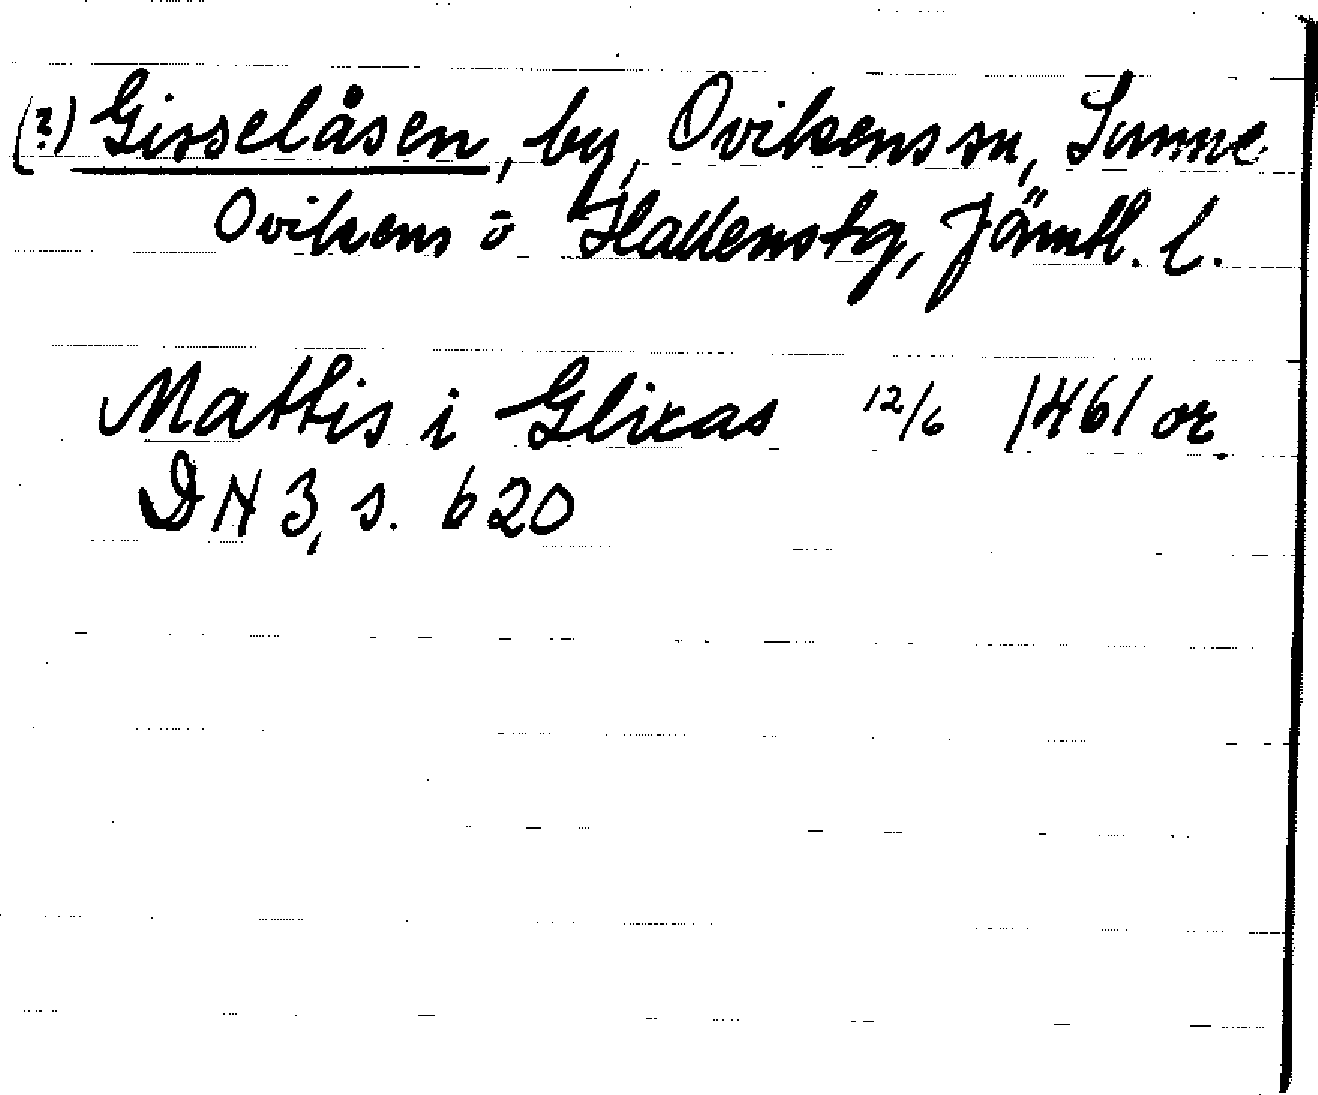 (?) Gisselåsen, by, Ovikens sn, Sunne
Ovikens o Hallens tg, Jämtl. l.
Mattis i Glicas 12/6 1461 or.
DN 3, s. 620